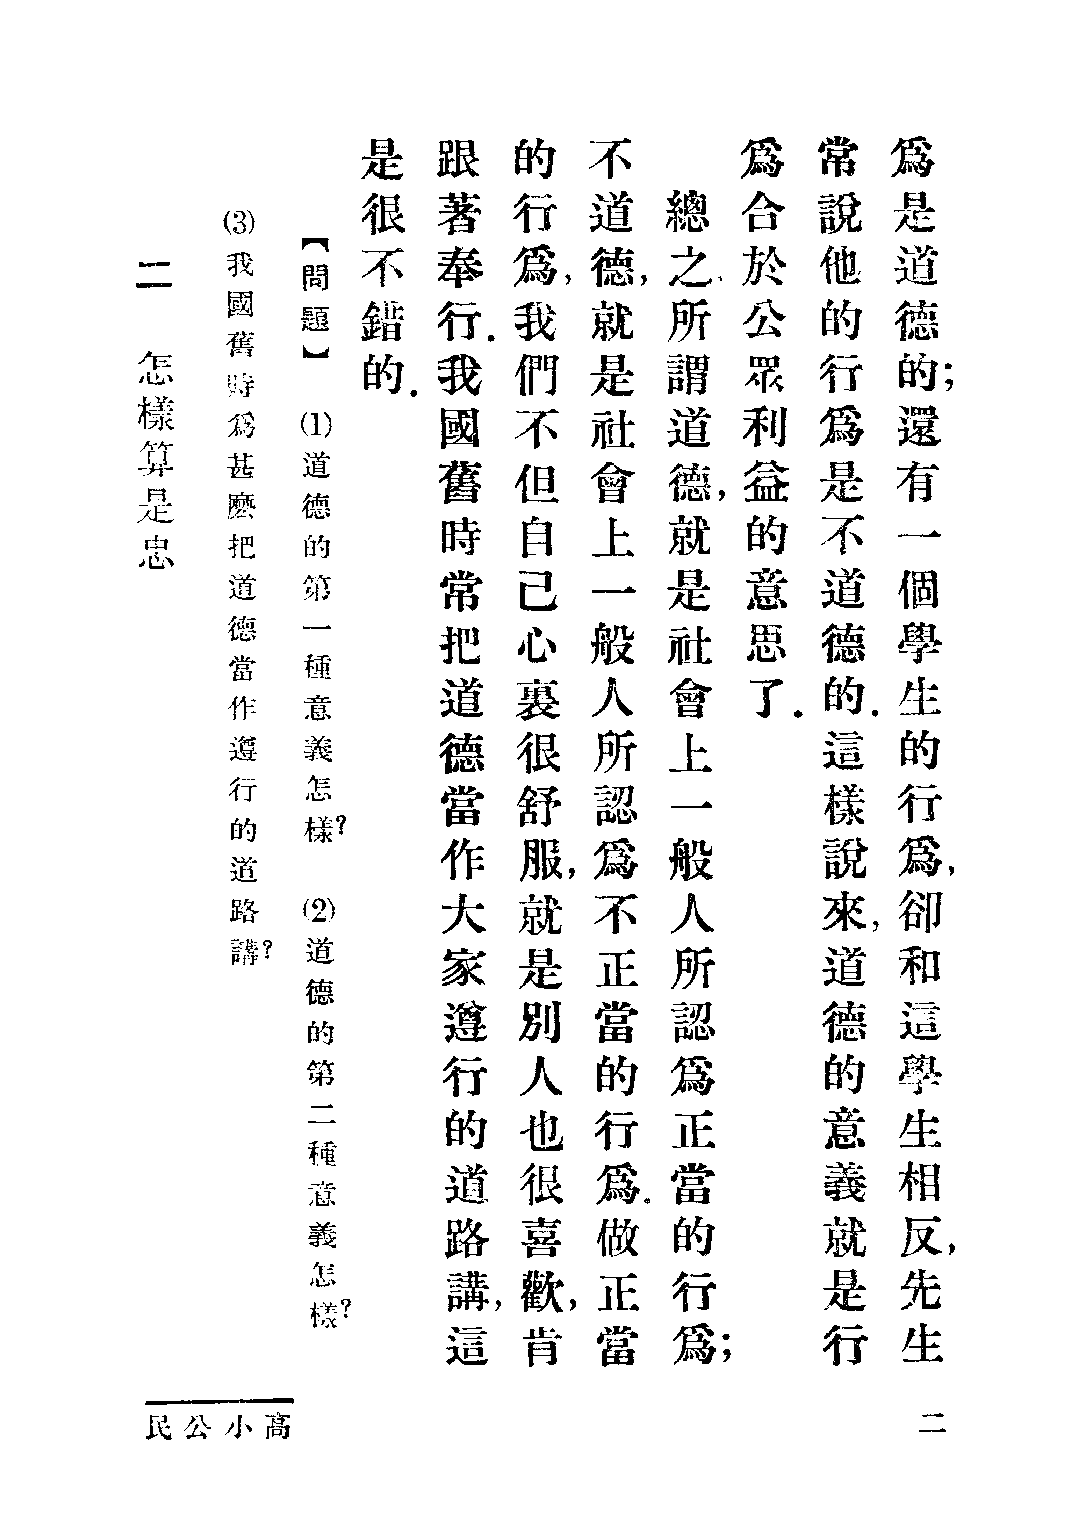 爲是道德的；還有一個學生的行爲，卻和這學生相反，先生
常說他的行爲是不道德的．這樣說來，道德的意義就是行
爲合於公眾利益的意思了．
總之，所謂道德，就是社會上一般人所認爲正當的行爲；
不道德，就是社會上一般人所認爲不正當的行爲．做正當
的行爲，我們不但自己心裏很舒服，就是別人也很喜歡，肯
跟著奉行．我國舊時常把道德當作大家遵行的道路講，這
是很不錯的．
【問題】 (1)道德的第一種意義怎樣？ (2)道德的第二種意義怎樣？
(3)我國舊時爲甚麼把道德當作遵行的道路講？
二 怎樣算是忠
高小公民
二